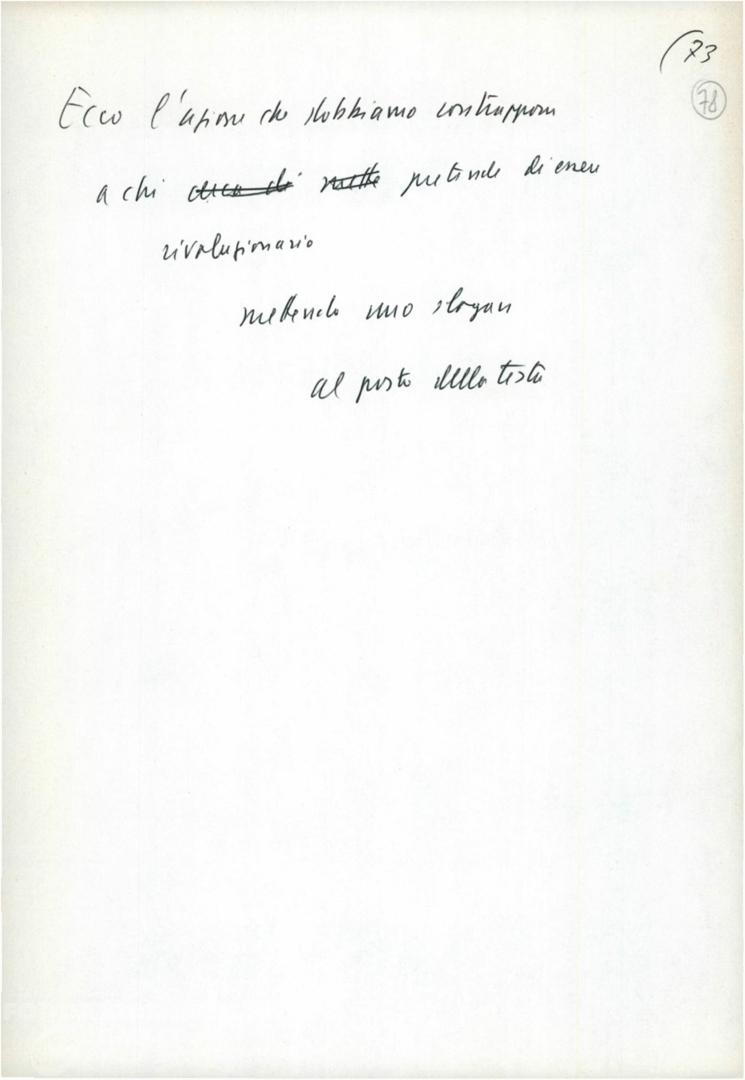 (73
78
Ecco l'azione che dobbiamo contrapporre
a chi cerca di mette pretende di essere
rivoluzionario
mettendo uno slogan
al posto della testa